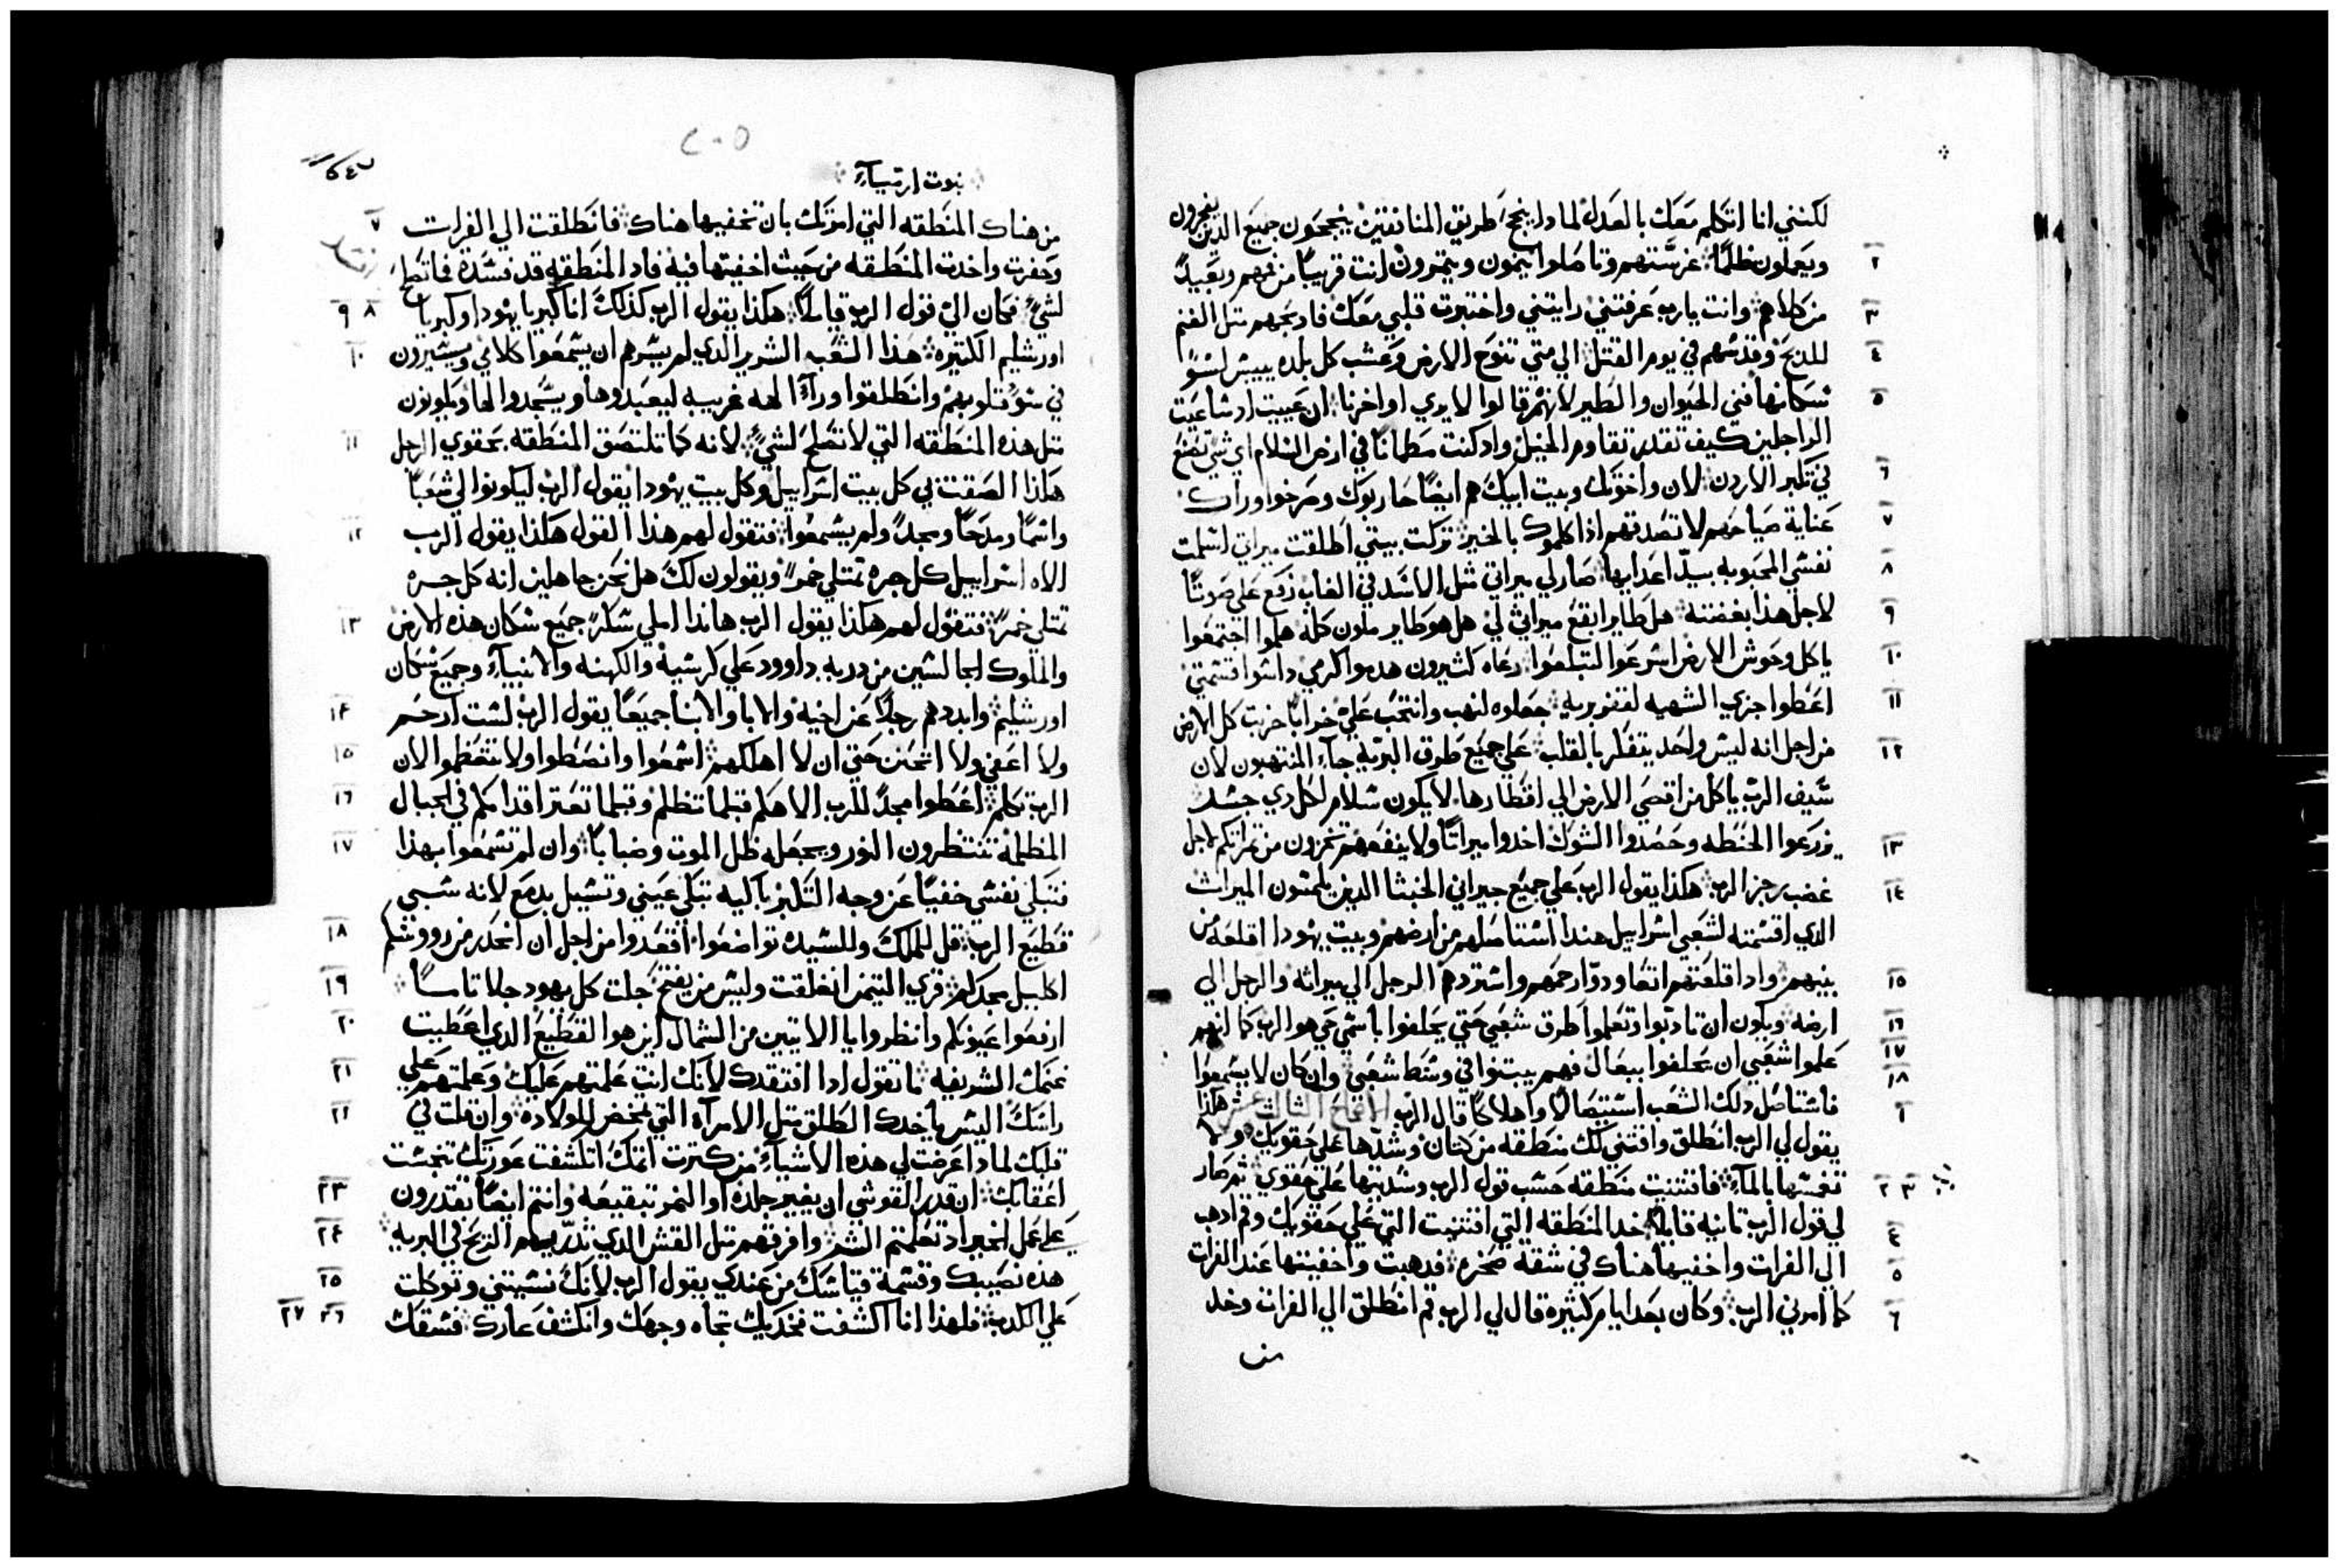 لكنني انا اتكلم معك بالعدل لماذا ينجح طريق المنافقين ينجحون جميع الذين يفجرون
٢ ويعملون ظلمًا غرستهم وتاصلوا ينمون ويثمرون انت قريبًا من فمهم وبعيدً
٣ من كلاهم وانت يارب عرفتني رايتني واختبرت قلبي معك فاد بحهم متل الغنم
٤ للدبح وقدسهم في يوم القتل الي متي تنوح الارض وعشب كل بلده ييبس لسوً
٥ سكانها فني الحيوان والطير لانهم قالوا لا يري اواخرنا ان عييت اد ساعيت
الراجلين كيف تقدر تقاوم الخيل واد كنت مطمانًا في ارض السلام اي شي تصنع
٦ في تكبر الاردن لان واخوتك وبيت ابيك هم ايضًا حاربوك وصرخوا وراك
٧ عناية صياحهم لا تصدقهم اذا كلموك بالخير تركت بيتي اطلقت ميراتي اسلمت
٨ نفسي المحبوبه بيدّ اعدايها صار لي ميراتي متل الاسد في الغاب رفع علي صوتًا
٩ لاجل هذا بغضته هل طاير ابقع ميراتي لي هل هو طاير ملون كله هلموا اجتمعوا
١٠ ياكل وحوش الارض اسرعوا لتبلعوا رعاه كثيرون هدموا كرمي داسوا قسمتي
١١ اعطوا جزي الشهيه لقفر بريه جعلوه لنهب وانتحب علي خرابًا خربت كل الارض
١٢ من اجل انه ليس واحد يتفكر بالقلب علي جميع طرق البريه جآء المنتهبون لان
سيف الرب ياكل من اقصي الارض الي اقطارها لا يكون سلام لكل دي جسد
١٣ زرعوا الحنطه وحصدوا الشوك اخدوا ميراتًا ولا ينفعهم تخزون من تمراتكم لاجل
١٤ غضب رجز الرب هكذا يقول الرب علي جميع جيراني الخبثا الدين يلمسون الميراث
الدي اقسمته لشعبي اسراييل هندا استاصلهم من ارضهم وبيت يهودا اقلعه من
١٥ بينهم وادا قلعتهم اتعاود وارحمهم واستردهم الرجل الي ميراثه والرجل الي
١٦ ارضه ويكون ان تادبوا وتعلموا طرق شعبي حتي يحلفوا باسمي حي هو الرب كما انهم
١٧ علموا شعبي ان يحلفوا ببعال فهم يبتنوا في وسط شعبي وان كان لا يسمعوا
١٨ فاستاصل دلك الشعب استيصالًا واهلاكًا قال الرب الاصحاح الثالث عشر هكذا
١ يقول لي الرب انطلق واقتني لك منطقه من كتان وشدّها علي حقويك ولا
٢ ٣ تغمسها بالمآء فاقتنيت منطقه حسب قول الرب وشدتها علي حقوي تم صار
٤ لي قول الرب تانيه قايلًا خد المنطقه التي اقتنيت التي علي حقويك وقم ادهب
٥ الي الفرات واخفيها هناك في شقه صخره فدهبت واخفيتها عند الفرات
٦ كما امرني الرب وكان بعد ايام كثيره قال لي الرب قم انطلق الي الفرات وخد
من
٢٠٥
نبوت ارميآء
٧ من هناك المنطقه التي امرتك بان تخفيها هناك فانطلقت الي الفرات
وحفرت واخدت المنطقه من حيث اخفيتها فيه فاد المنطقه قد فسدة فما تصلح
٨ ٩ لشيء فكان الي قول الرب قايلًا هكذا يقول الرب كذلك انا كبريا يهودا وكبريا
١٠ اورشليم الكتيره هذا الشعب الشرير الدي لم يسرهم ان يسمعوا كلامي ويسيرون
في سوء قلوبهم وانطلقوا ورآء الهه غريبه ليعبدوها ويسجدوا لها ويكونون
١١ متل هذه المنطقه التي لا تصلح لشيء لانه كما تلتصق المنطقه بحقوي الرجل
هكذا الصقت بي كل بيت اسراييل وكل بيت يهودا يقول الرب ليكونوا لي شعبًا
١٢ واسمًا ومدحًا ومجدً ولم يسمعوا فتقول لهم هذا القول هكذا يقول الرب
الاه اسراييل كل جره تمتلي خمرً ويقولون لك هل نحن جاهلين انه كل جره
١٣ تمتلي خمرً فتقول لهم هكذا يقول الرب هاندا املي سكرً جميع سكان هذه الارض
والملوك الجالسين من دريه داوود علي كرسيه والكهنه والانبيآء وجميع سكان
١٤ اورشليم وابددهم رجلًا عن اخيه والابا والابنا جميعًا يقول الرب لست ارحم
١٥ ولا اعفي ولا اتحنن حتي ان لا اهلكهم اسمعوا وانصطوا ولا تتعظموا لان
١٦ الرب تكلم اعطوا مجدً للرب الاهكم قبلما تظلم وقبلما تعتر اقدامكم في الجبال
١٧ المظلمه تنتظرون النور ويجعله ظل الموت وضبابًا وان لم تسمعوا بهذا
فتبكي نفسي خفيًا عن وجه التكبر باكيه تبكي عيني وتسيل بدمع لانه سبي
١٨ قطيع الرب قل للملك وللسيده تواضعوا اقعدوا من اجل ان انحدر من رووسكم
١٩ اكليل مجدكم قري التيمن انغلقت وليس من يفتح جلت كل يهود جلا تامًا
٢٠ ارفعوا عيونكم وانظروا يا الاتيين من الشمال اين هو القطيع الدي اعطيت
٢١ غنمك الشريفه ما تقول ادا افتقدك لانك انت علمتهم عليك وعلمتهم علي
٢٢ راسك اليس ياخدك الطلق متل الامرآه التي تمخض للولاده وان قلت في
قلبك لمادا عرضت لي هذه الاشيآء من كترت اتمك انكشفت عورتك تنجست
٢٣ اعقابك ان قدر القوشي ان يغير جلده او النمر تبقيعه وانتم ايضًا تقدرون
٢٤ علي عمل الخير اد تعلمتم الشر وافرقهم متل القش الدي تدريهم الريح في البريه
٢٥ هذه نصيبك وقسمة قياسك من عندي يقول الرب لانك نسيتني وتوكلت
٢٦ ٢٧ علي الكدب فلهذا انا اكشفت فخديك تجاه وجهك وانكشف عارك فسقك